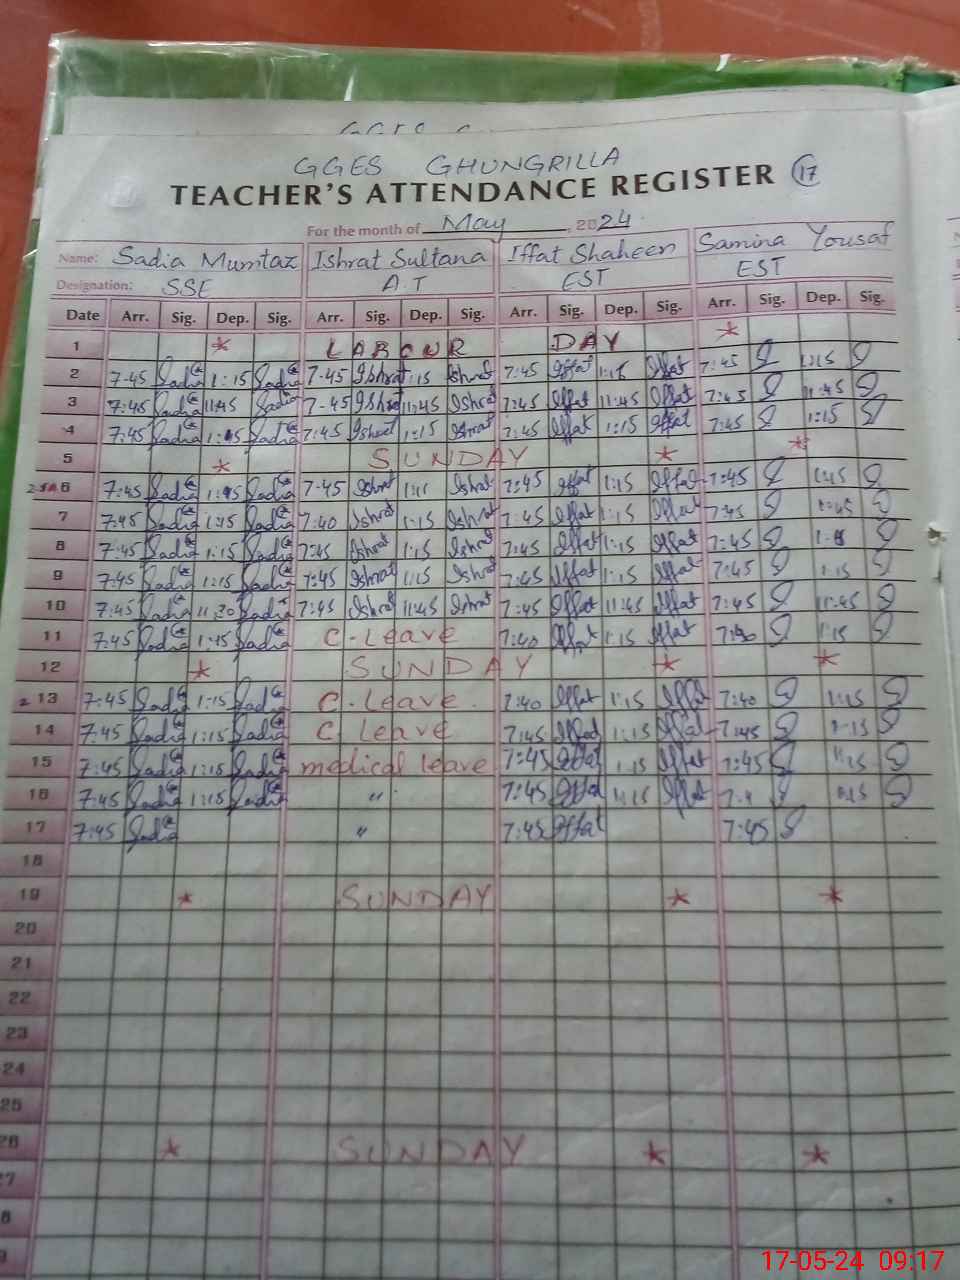 GGES GHUNGRILLA
TEACHER'S ATTENDANCE REGISTER 17
For the month of May, 2024.
Name: Sadia Mumtaz Ishrat Sultana Iffat Shaheen Samina Yousaf
Designation: SSE A.T EST EST
Date Arr. Sig. Dep. Sig. Arr. Sig. Dep. Sig. Arr. Sig. Dep. Sig. Arr. Sig. Dep. Sig.
1 * LABOUR DAY *
2 7-45 Sadia 1:15 Sadia 7-45 Ishrat 1:15 Ishrat 7:45 Iffat 1:15 Iffat 7:45 1:15
3 7:45 Sadia 11:45 Sadia 7-45 Ishrat 11:45 Ishrat 7:45 Iffat 11:45 Iffat 7:45 11:45
4 7:45 Sadia 1:15 Sadia 7:45 Ishrat 1:15 Ishrat 7:45 Iffat 1:15 Iffat 7:45 1:15
5 * SUNDAY * *
6 7:45 Sadia 1:15 Sadia 7-45 Ishrat Ishrat 7:45 Iffat 1:15 Iffat 7:45 1:15
7 7:45 Sadia 1:15 Sadia 7:40 Ishrat 1:15 Ishrat 7:45 Iffat 1:15 Iffat 7:45
8 7:45 Sadia 1:15 Sadia 7:45 Ishrat 1:15 Ishrat 7:45 Iffat 1:15 Iffat 7:45
9 7:45 Sadia 1:15 Sadia 7:45 Ishrat 1:15 Ishrat 7:45 Iffat 1:15 Iffat 7:45 1:15
10 7:45 Sadia 11:20 Sadia 7:45 Ishrat 11:45 Ishrat 7:45 Iffat 11:45 Iffat 7:45 11:45
11 7:45 Sadia 1:15 Sadia C-Leave 7:40 Iffat 1:15 Iffat 1:15
12 * SUNDAY * *
13 7:45 Sadia 1:15 Sadia C-Leave. 7:40 Iffat 1:15 Iffat 7:40 1:15
14 7:45 Sadia 1:15 Sadia C Leave 7:45 Iffat 1:15 Iffat 7:45 1:15
15 7:45 Sadia 1:15 Sadia medical leave 7:45 Iffat 1:15 Iffat 7:45 1:15
16 7:45 Sadia 1:15 Sadia " 7:45 Iffat 1:15 Iffat
17 7:45 Sadia " 7:45 Iffat 7:45
18
19 * SUNDAY * *
20
21
22
23
24
25
26 * SUNDAY * *
7
8
9
17-05-24 09:17